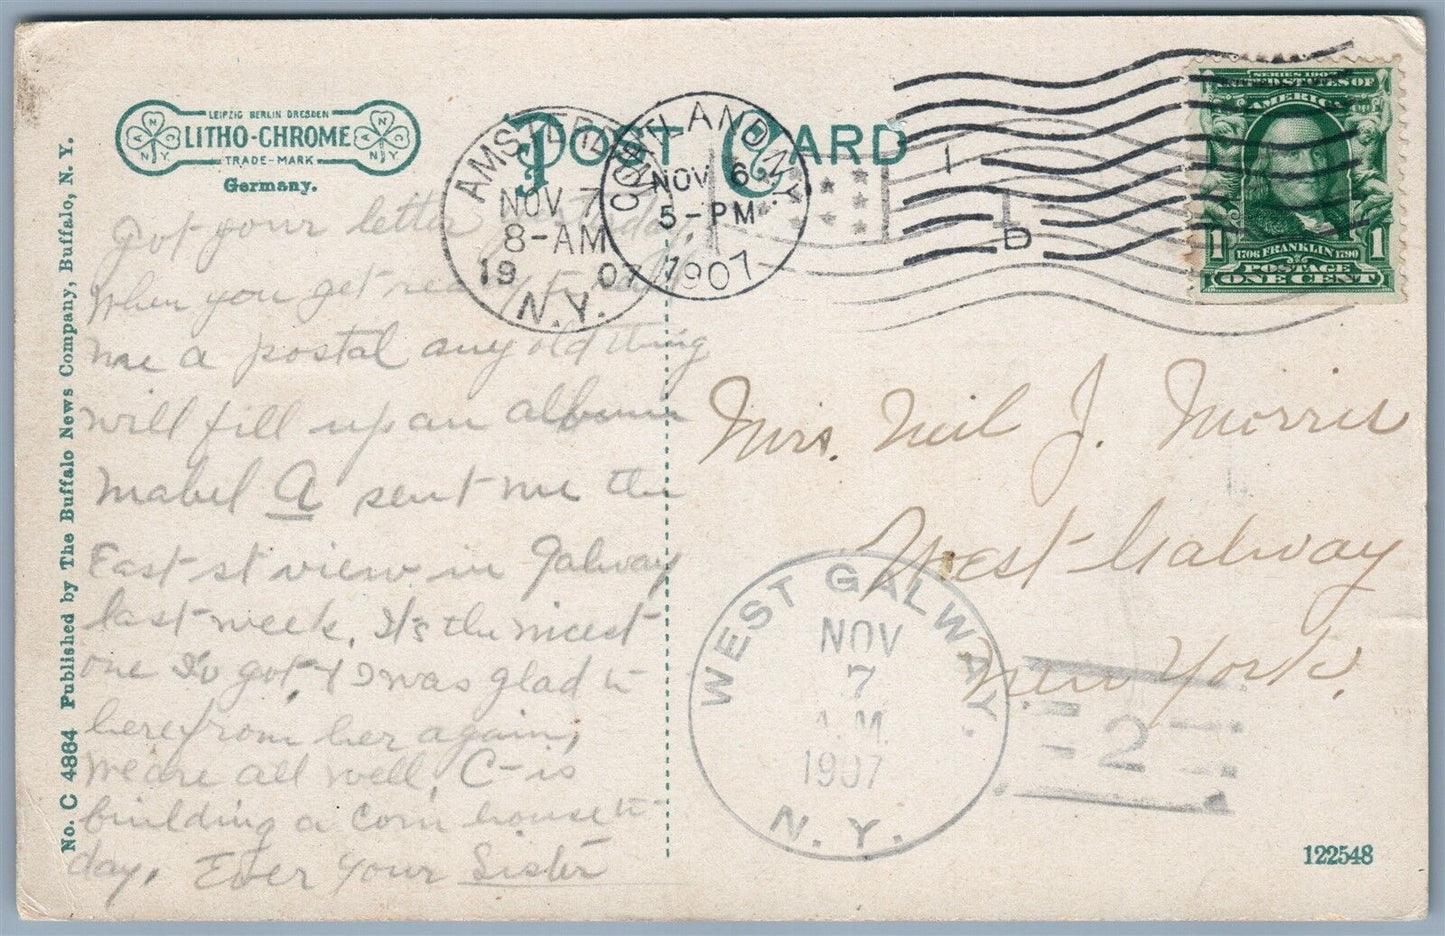 LEIPZIG BERLIN DRESDEN
LITHO-CHROME
TRADE-MARK
Germany.
POST CARD
AMSTERD
NOV 7
8-AM
19 07
N.Y.
CORTLAND, N.Y.
NOV 6
5-PM
1907
D
SERIES 1902
UNITED STATES OF
AMERICA
1706 FRANKLIN 1790
1 1
POSTAGE
ONE CENT
No. C 4864 Published by The Buffalo News Company, Buffalo, N. Y.
Got your letter today.
When you get ready to
me a postal any old thing
will fill up an album
Mabel A sent me the
East st view in Galway
last week. It's the nicest
one I've got & I was glad to
here from her again,
We are all well. C- is
building a corn house to
day. Ever your Sister
Mrs. Neil J. Morris
West Galway
New York.
WEST GALWAY.
NOV
7
A.M.
1907
N.Y.
2
122548